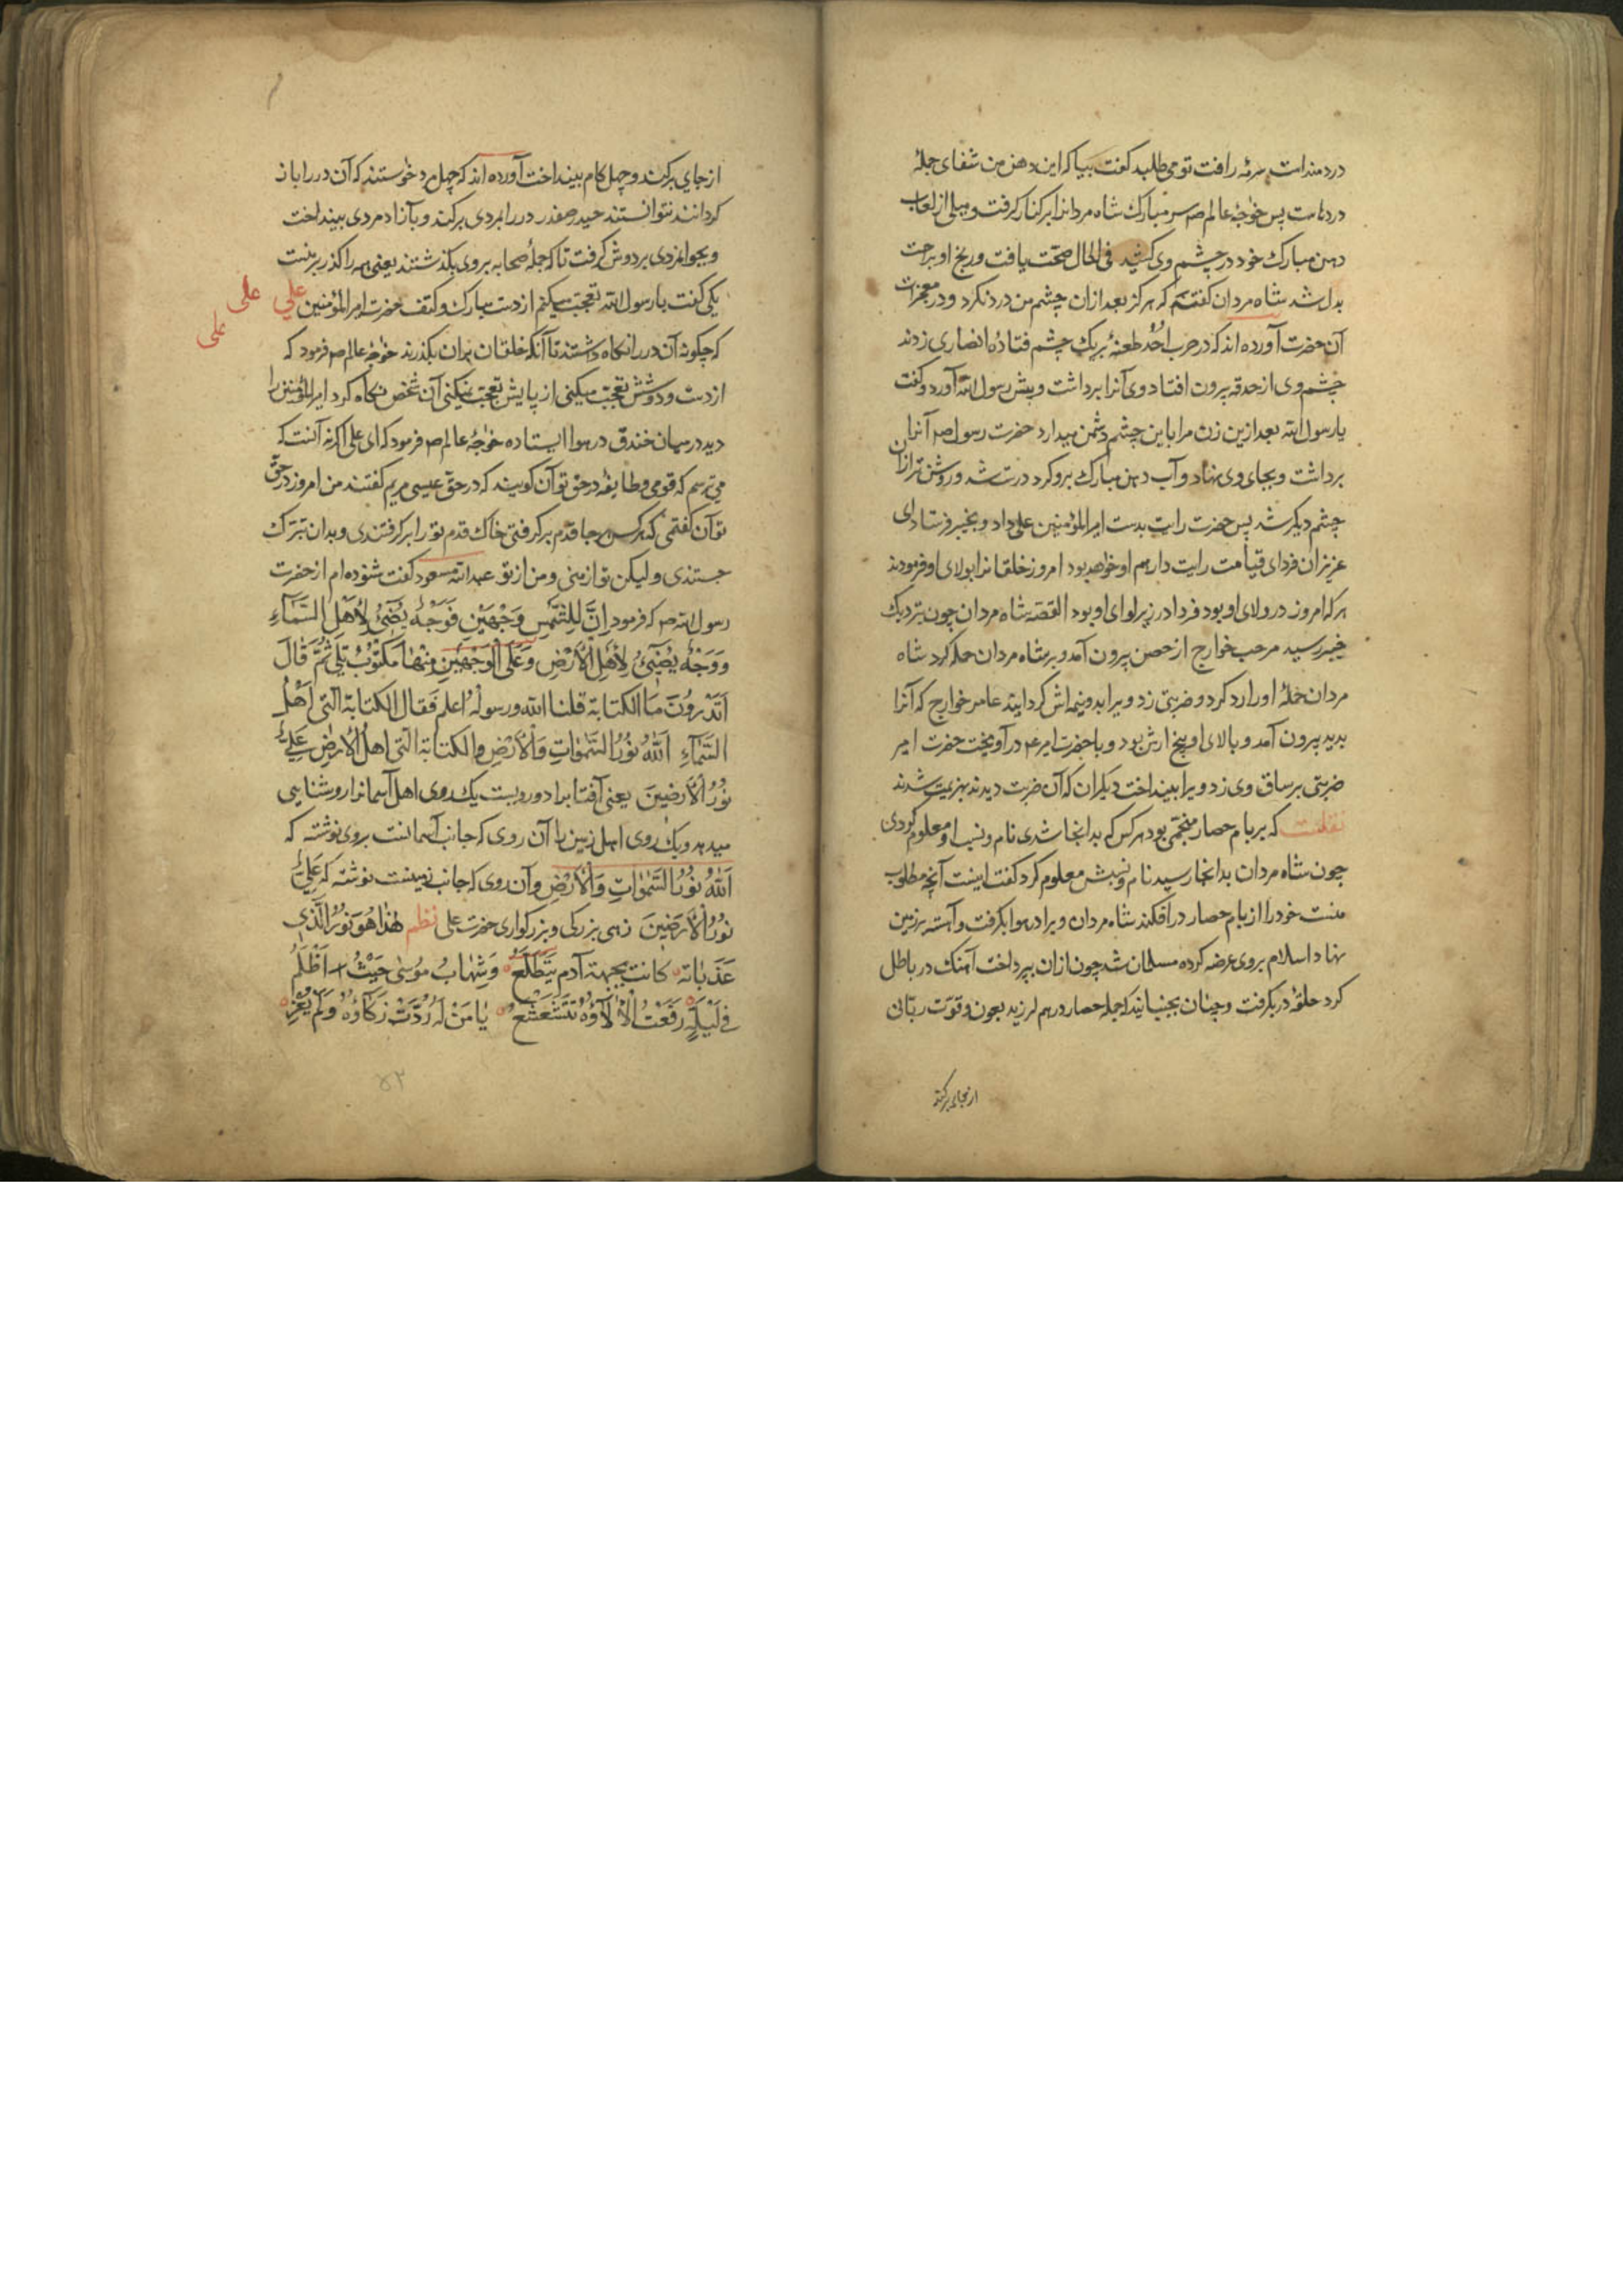 دردمندانست سرمهٔ رافت تو می طلبد گفت بیا که این دهن من شفای جملهٔ
دردهاست پس خواجهٔ عالم صم سر مبارک شاه مردانرا برکنار گرفت و میلی از لعاب
دهن مبارک خود در چشم وی کشید فی الحال صحّت یافت و رنج او براحت
بدل شد شاه مردان گفته که هرگز بعد ازان چشم من درد نکرد و در معجزات
آن حضرت آورده اند که در حرب احُد طعنهٔ بر یک چشم قتادهٔ انصاری زدند
چشم وی از حدقه بیرون افتاد وی آنرا برداشت و پیش رسول الله آورد و گفت
یا رسول الله بعد ازین زن مرا باین چشم دشمن میدارد حضرت رسول صم آنرا
برداشت و بجای وی نهاد و آب دهن مبارک برو کرد درست شد و روشن تر ازان
چشم دیگر شد پس حضرت رایت بدست امیرالمؤمنین علی داد و بخیبر فرستاد ای
عزیزان فردای قیامت رایت دار هم او خواهد بود امروز خلقانرا بولای او فرمودند
هر که امروز در ولای او بود فردا در زیر لوای او بود القصّه شاه مردان چون بنزدیک
خیبر رسید مرحب خوارج از حصن بیرون آمد و بر شاه مردان حمله کرد شاه
مردان حملهٔ او را رد کرد و ضربتی زد و ویرا بدو نیمه اش گردانید عامر خوارج که آنرا
بدید بیرون آمد و بالای او پنج ارش بود و با حضرت امیر ع در آویخت حضرت امیر
ضربتی بر ساق وی زد و ویرا بینداخت دیگران که آن ضربت دیدند بهزیمت شدند
نقلست که بر بام حصار منجمّی بود هر کس که بدانجا شدی نام و نسب او معلوم کردی
چون شاه مردان بدانجا رسید نام و نسبش معلوم کرد گفت اینست آنچه مطلوب
منست خود را از بام حصار درافکند شاه مردان ویرا در هوا بگرفت و آهسته بر زمین
نهاد اسلام بروی عرضه کرده مسلمان شد چون ازان بپرداخت آهنگ در باطل
کرد حلقهٔ در بگرفت و چنان بجنبانید که جمله حصار در هم لرزید بعون و قوّت ربّانی
از جای برکند
از جای برکند و چهل کام بینداخت آورده اند که چهل مرد خواستند که آن در را باز
گردانند نتوانستند حیدر صفدر در را بمردی برکند و بآزاد مردی بینداخت
و بجوانمردی بر دوش گرفت تا که جملهٔ صحابه بروی بگذشتند یعنی همه را گذر بر منست
یکی گفت یا رسول الله تعجبّ میکنم از دست مبارک و کتف حضرت امیرالمؤمنین علی علی
علی
که چگونه آن در را نگاه داشتند تا آنکه خلقان بران بگذرند خواجهٔ عالم صم فرمود که
از دست و دوشش تعجبّ میکنی از پایش تعجبّ نمیکنی آن شخص نگاه کرد امیرالمؤمنین را
دید در میان خندق در هوا ایستاده خواجهٔ عالم صم فرمود که ای علی اگر نه آنست که
می ترسم که قومی و طایفه در حق تو آن گویند که در حق عیسی مریم گفتند من امروز در حقّ
تو آن گفتمی که هر کس هر جا قدم برگرفتی خاک قدم تو را برگرفتندی و بدان تبرّک
جستندی و لیکن تو از منی و من از تو عبدالله مسعود گفت شنوده ام از حضرت
رسول الله صم که فرمود اِنَّ لِلشَّمْسِ وَجْهَیْنِ فَوَجْهٌ یُضیٓئُ لِأَهْلِ السَّمَآءِ
وَوَجْهٌ یُضیٓئُ لِأَهْلِ الْأَرْضِ وَعَلَی الْوَجْهَیْنِ مِنْهٰا مَکْتُوْبٌ بَلَی ثُمَّ قٰالَ
اَتَدْرُونَ مَا الکتابة قلنا الله ورسولهُ اعلم فَقال الکتابة الّتی لِاَهْلِ
السَّمَآءِ اَللّٰهُ نُوْرُ السَّمٰوَاتِ وَالْأَرْضِ والکتابة الّتی لِاهل الْأَرْضِ عَلِیٌّ
نُوْرُ الْأَرَضِینَ یعنی آفتابرا دو رویست یک روی اهل آسمانرا روشنایی
میدهد و یک روی اهل زمین را آن روی که جانب آسمانست بروی نوشته که
اَللّٰهُ نُوْرُ السَّمٰوَاتِ وَالْأَرْضِ وآن روی که جانب زمینست نوشته که عَلِیٌّ
نُوْرُ الْأَرَضِینَ زهی بزرکی و بزرکواری حضرت علی نظم هٰذٰا هُوَ نُوْرُ الَّذی
عَذَبٰاته کانت بجبهة آدم یَتَطَلَّعُ وَشِهٰابُ مُوسٰی حَیْثُ اَظْلَمُ
فی لَیْلَةٍ رَفَعْتُ الْأَلآؤُهُ تَتَشَعْشَعُ یٰا مَنْ لَهُ رُدَّتْ زَکآؤُهُ وَلَمْ یَفُزْ
۵۲